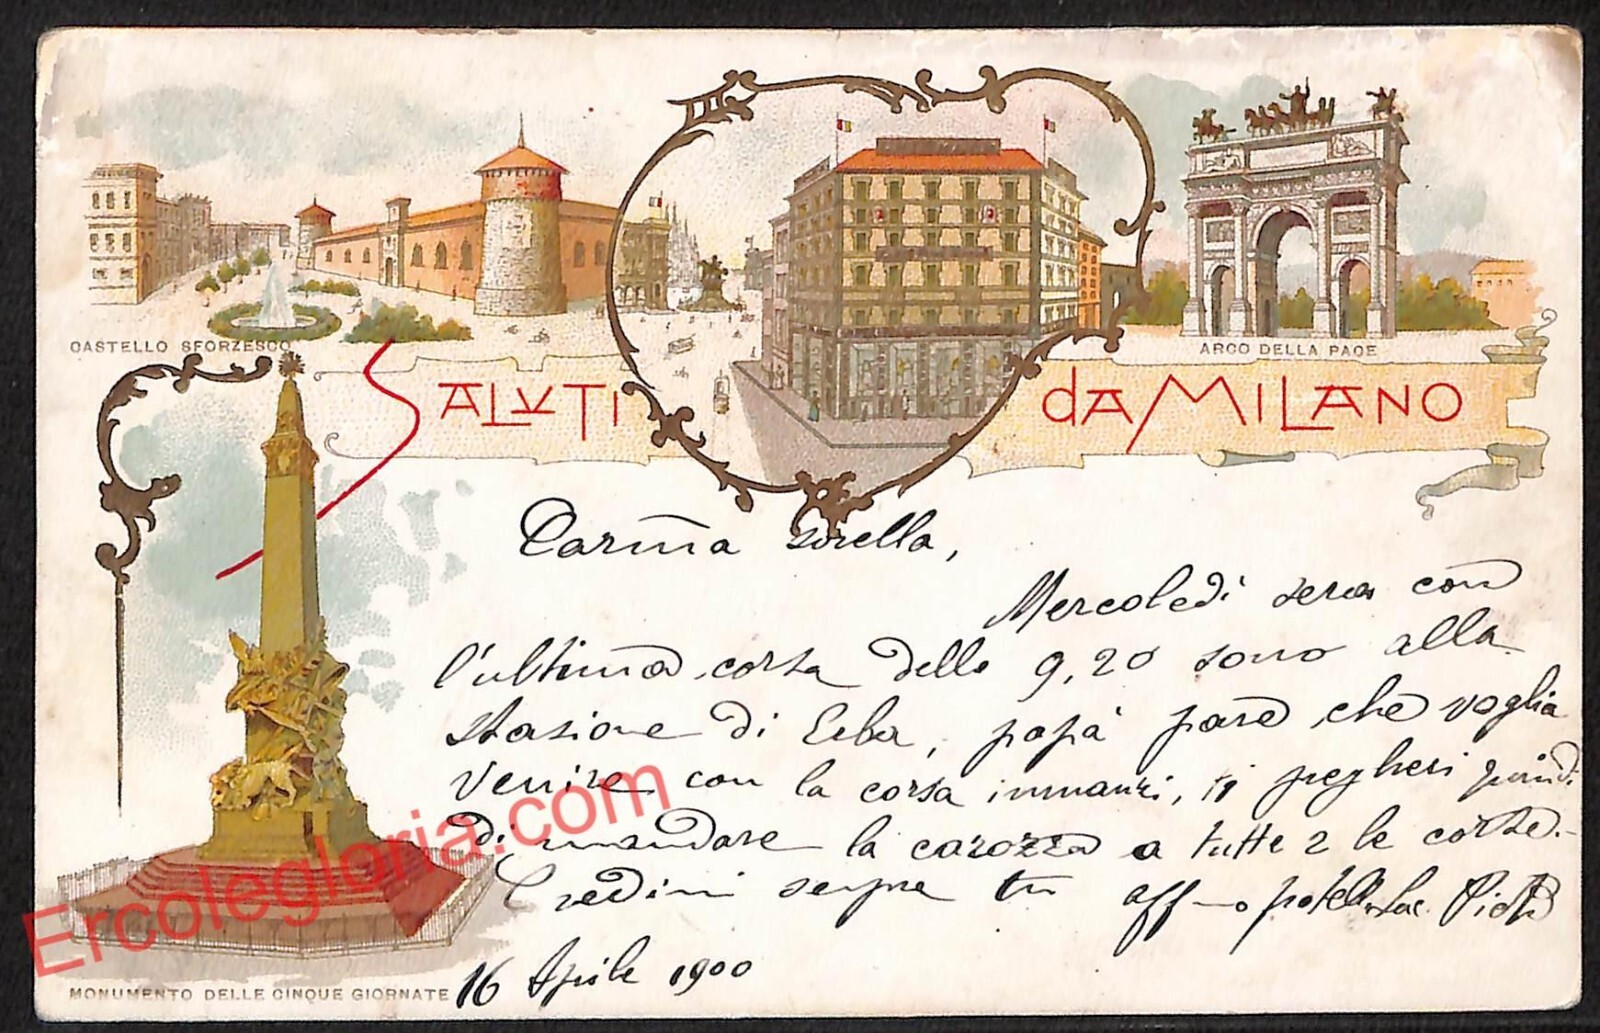 CASTELLO SFORZESCO
ARCO DELLA PACE
SALUTI DA MILANO
Carma sorella,
Mercoledì sera con
l'ultima corsa delle 9,20 sono alla
stazione di Erba, papà pare che voglia
venire con la corsa innanzi, ti pregherei quindi
di mandare la carozza a tutte 2 le corse.-
Credimi sempre tu aff-o fratello
16 Aprile 1900
MONUMENTO DELLE CINQUE GIORNATE
Ercolegloria.com